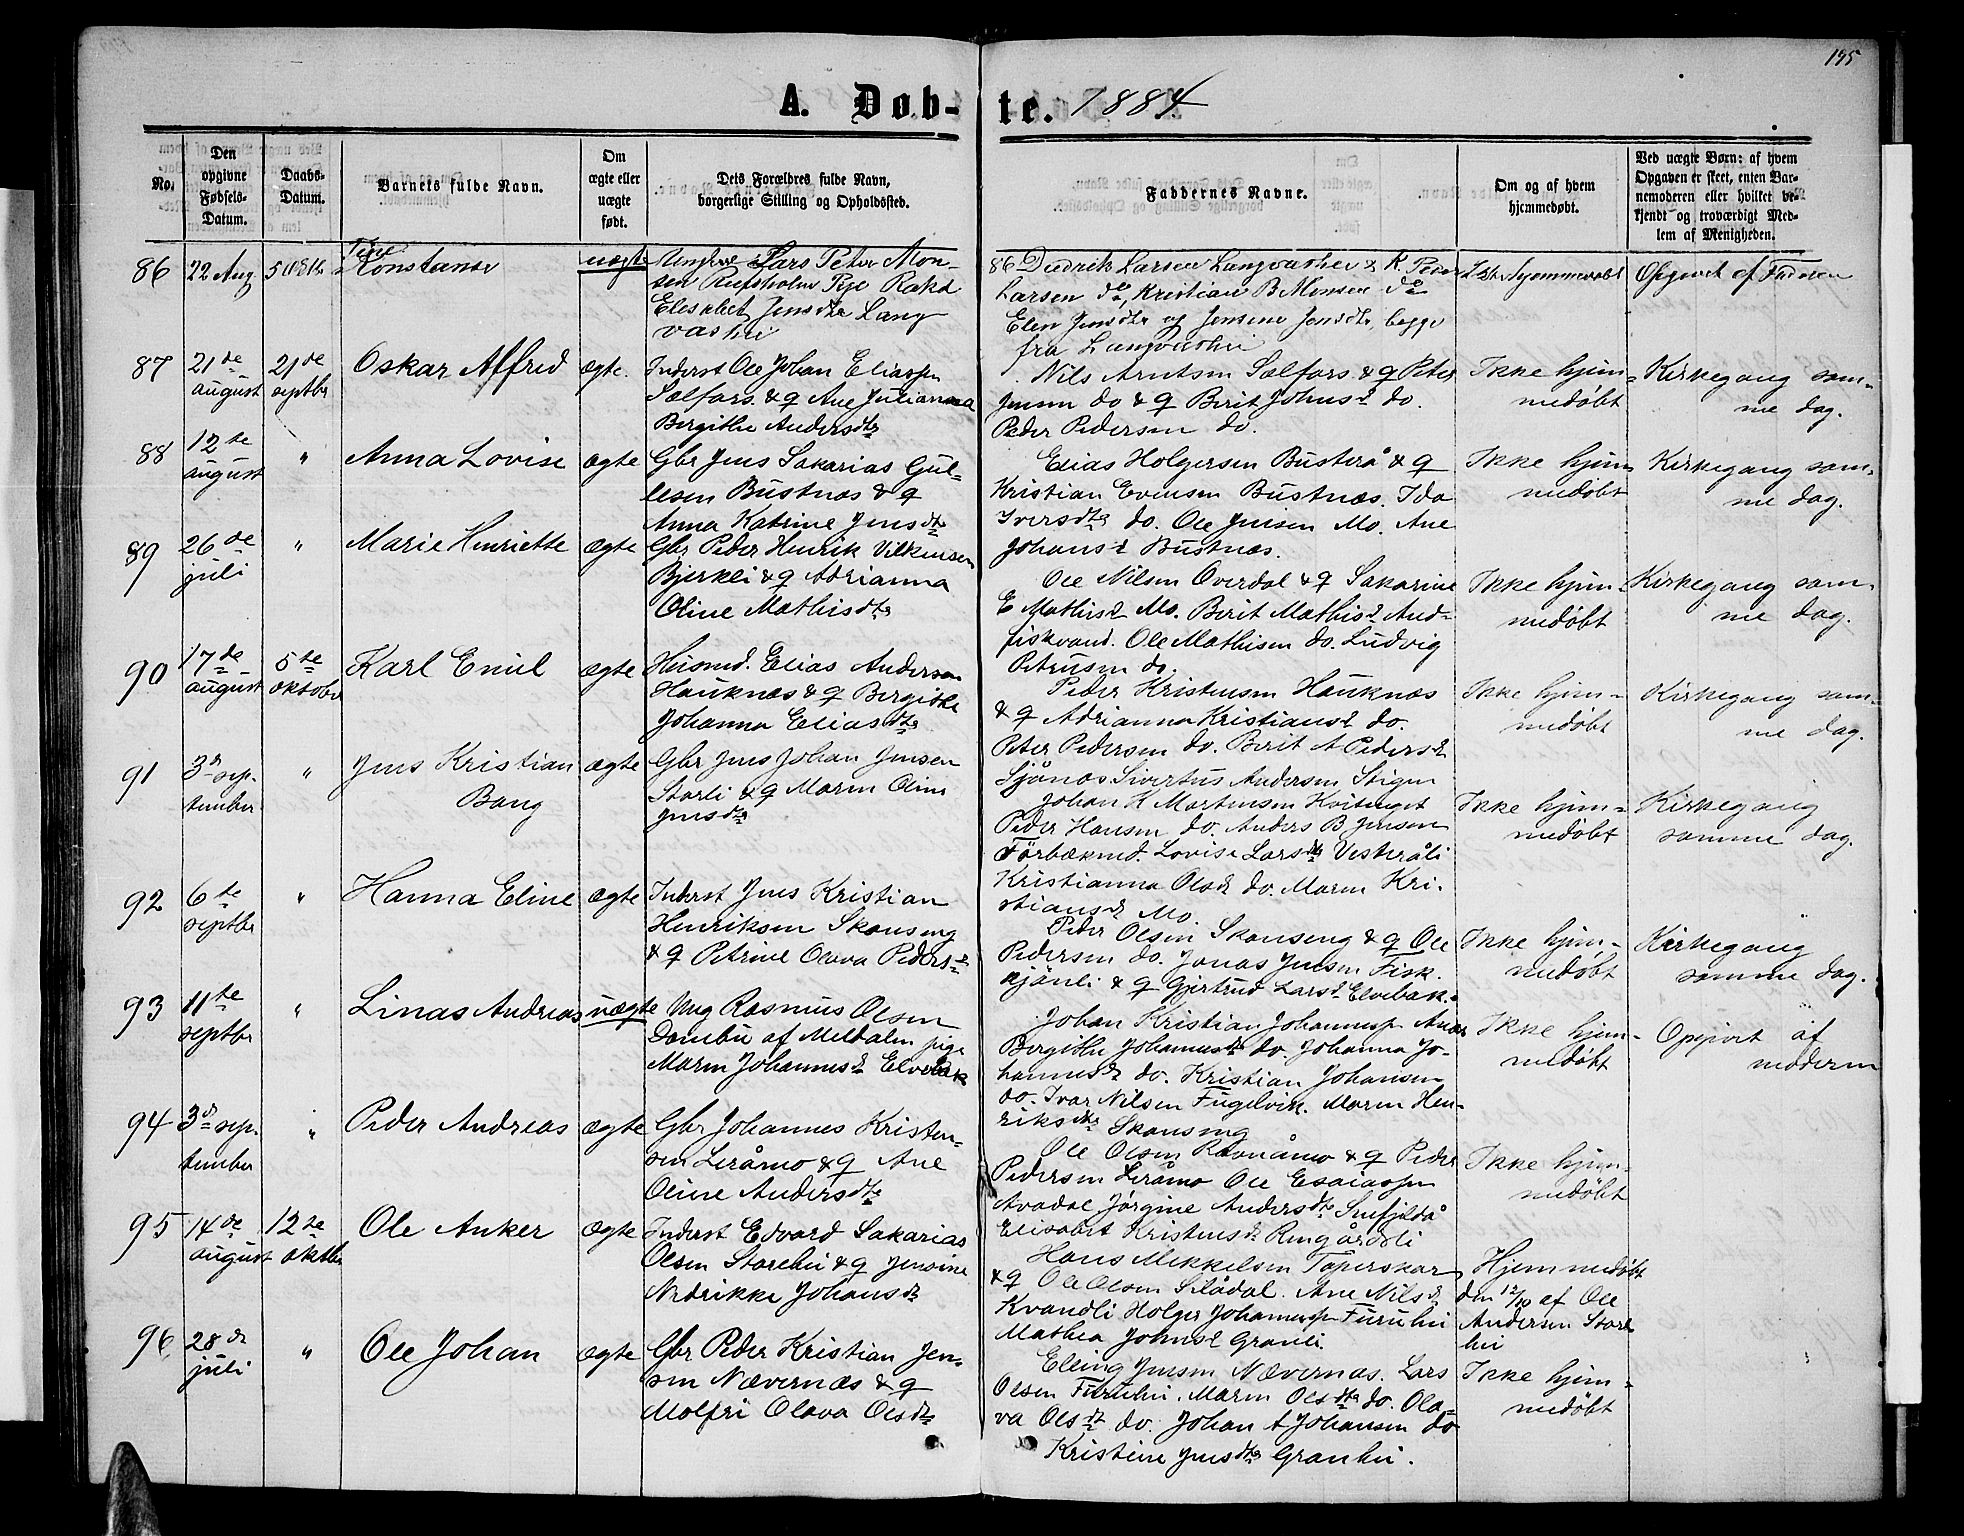 195
A. Døb-te. 1884.
No.
Den opgivne Fødsels-Datum.
Daabs-Datum.
Barnets fulde Navn.
Om ægte eller uægte født.
Dets Forældres fulde Navn, borgerlige Stilling og Opholdssted.
Faddernes Navne.
Om og af hvem hjemmedøbt.
Ved uægte Børn: af hvem Opgaven er skeet, enten Barnemoderen eller hvilket bekjendt og troværdigt Medlem af Menigheden.
86
22 Aug
Tine
Konstanse
uægte
Lars Peter Mon-
sen Pige
Elesabet Jensdtr Lang
vashei
86 Diedrik Larsen Langvashei & K. Peder
Larsen do, Kristian B Monsen do
Elen Jensdtr og Jensine Jensdtr, begge
fra Langvashei
Opgivet af Faderen
87
21de
august
21de
septbr
Oskar Alfred
ægte.
Inderst Ole Johan Eliassen
Selfors. & q Ane Julianna
Birgithe Andersdtr
Nils Arntsen Selfors. & q Peter
Jensen do & q Berit Johnsd do.
Peder Pedersen do.
Ikke hjem-
medøbt
Kirkegang sam-
me dag.
88
12te
august
"
Anna Lovise
ægte
Gbr Jens Sakarias Gul-
lesen Bustnes & q
Anna Katrine Jensdtr
Elias Holgersen Busterå & q
Kristian Evensen Bustnæs. Ida
Iversdtr do. Ole Jensen Mo. Ane
Johansd Bustnæs.
Ikke hjem
medøbt
Kirkegang sam-
me dag.
89
26de
juli
"
Marie Henriette
ægte
Gbr Peder Henrik Vilkensen
Bjerkli & q Adrianna
Oline Mathisdtr
Ole Nilsen Overdal & q Sakarine
E Mathisd Mo. Berit Mathisd And-
fiskvand. Ole Mathisen do. Ludvig
Petrusen do.
Ikke hjem-
medøbt
Kirkegang sam-
me dag.
90
17de
august
5te
oktober
Karl Emil
ægte
Husmd. Elias Andersen
Hauknæs & q Bergithe
Johanna Eliasdtr
Peder Kristensen Hauknæs
& q Adrianna Kristiansd do.
Peter Pedersen do. Berit A Pedersd
Sjånæs Sivertus Andersen Stigen
Ikke hjem-
medøbt
Kirkegang sam-
me dag.
91
3d sep-
tember
"
Jens Kristian
Bang
ægte
Gbr Jens Johan Jensen
Storli & q Maren Oline
Jensdtr
Johan K Martinsen
Peder Hansen do. Anders B Jensen
Lovise Larsdtr Vesteråli
Kristianna Olsd do. Maren Kri-
stiansd Mo.
Ikke hjem-
medøbt
Kirkegang
samme dag.
92
6te
septbr
"
Hanna Eline
ægte
Inderst Jens Kristian
Henriksen Skonseng
& q Petrine Olava Pedersd
Peder Olsen Skonseng & q Ole
Pedersen do. Jonas Jensen Fisk-
kjønli & q Gjertrud Larsd Elvebak.
Ikke hjem-
medøbt
Kirkegang
samme dag.
93
11te
septbr
"
Linas Andreas
uægte
Ung Rasmus Olsen
Dombu af Meldalen pige
Maren Johannesd Elvebak
Johan Kristian Johannesen
Bergithe Johannesdtr do. Johanna Jo-
hannesd do. Kristian Johansen
do. Ivar Nilsen Fugelvik. Maren Hen-
riksdtr Skonseng
Ikke hjem-
medøbt
Opgivet af
moderen
94
3d sep-
tember
"
Peder Andreas
ægte
Gbr Johannes Kristen-
sen Leråmo & q Ane
Oline Andersdtr
Ole Olsen Ravnåmo & q Peder
Pedersen Leråmo Ole Esaiassen
Avadal Jørgine Andersdtr Snefjeldå
Elisabet Kristensd Ringårdsli
Ikke hjem-
medøbt
95
14de
august
12te
oktbr
Ole Anker
ægte
Inderst Edvard Sakarias
Olsen Storehei & q Jensine
Nedrikke Johansd
Hans Mikkelsen Toperskar
& q Ole Olsen Silådal. Ane Nilsd
Kvandli Holger Johannessen Furuhei
Mathea Johnsd Granli.
Hjemmedøbt
den 12/10 af Ole
Andersen Store
hei
96
28de
juli
"
Ole Johan
ægte
Gbr Peder Kristian Jen-
sen Nævernæs & q
Molfri Olava Olsdtr
Elling Jensen Nævernæs. Lars
Olsen Furuhei. Maren Olsdtr do. Ola-
va Olsdt do. Johan A Johansen do
Kristine Jensdtr Granhei.
Ikke hjem-
medøbt